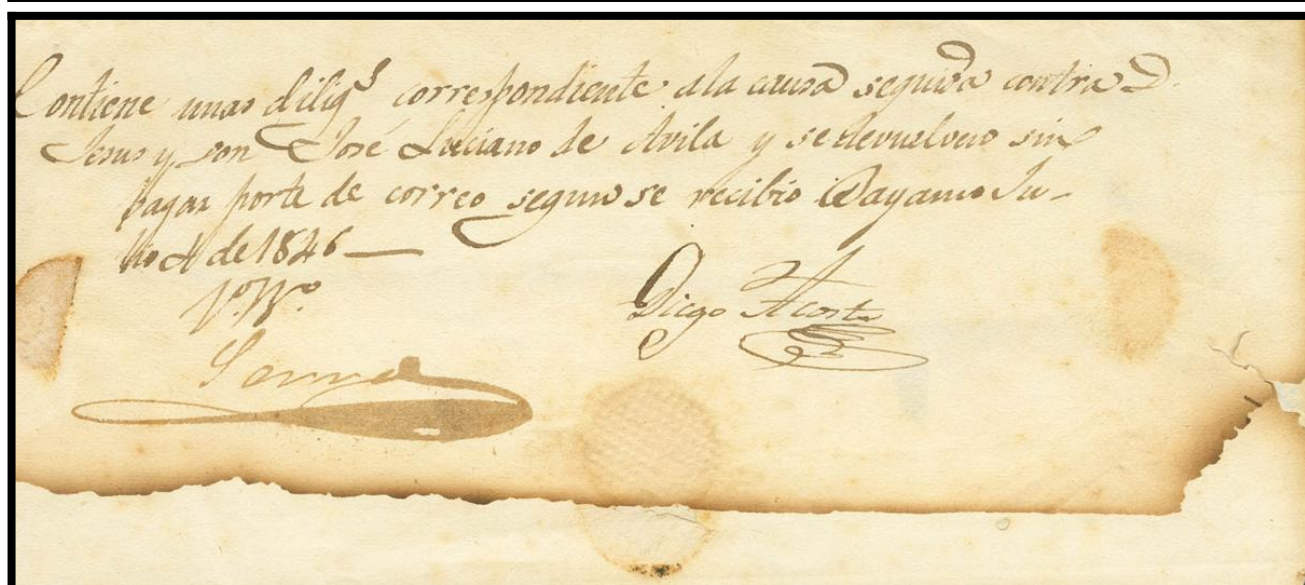 Contiene unas diligs correspondiente ala causa seguida contra D.
Jesus y don José Luciano de Avila y se devuelven sin
pagar porte de correo segun se recibio Bayamo Ju-
de 1846 —
Vo. Bo.
Diego Acosta